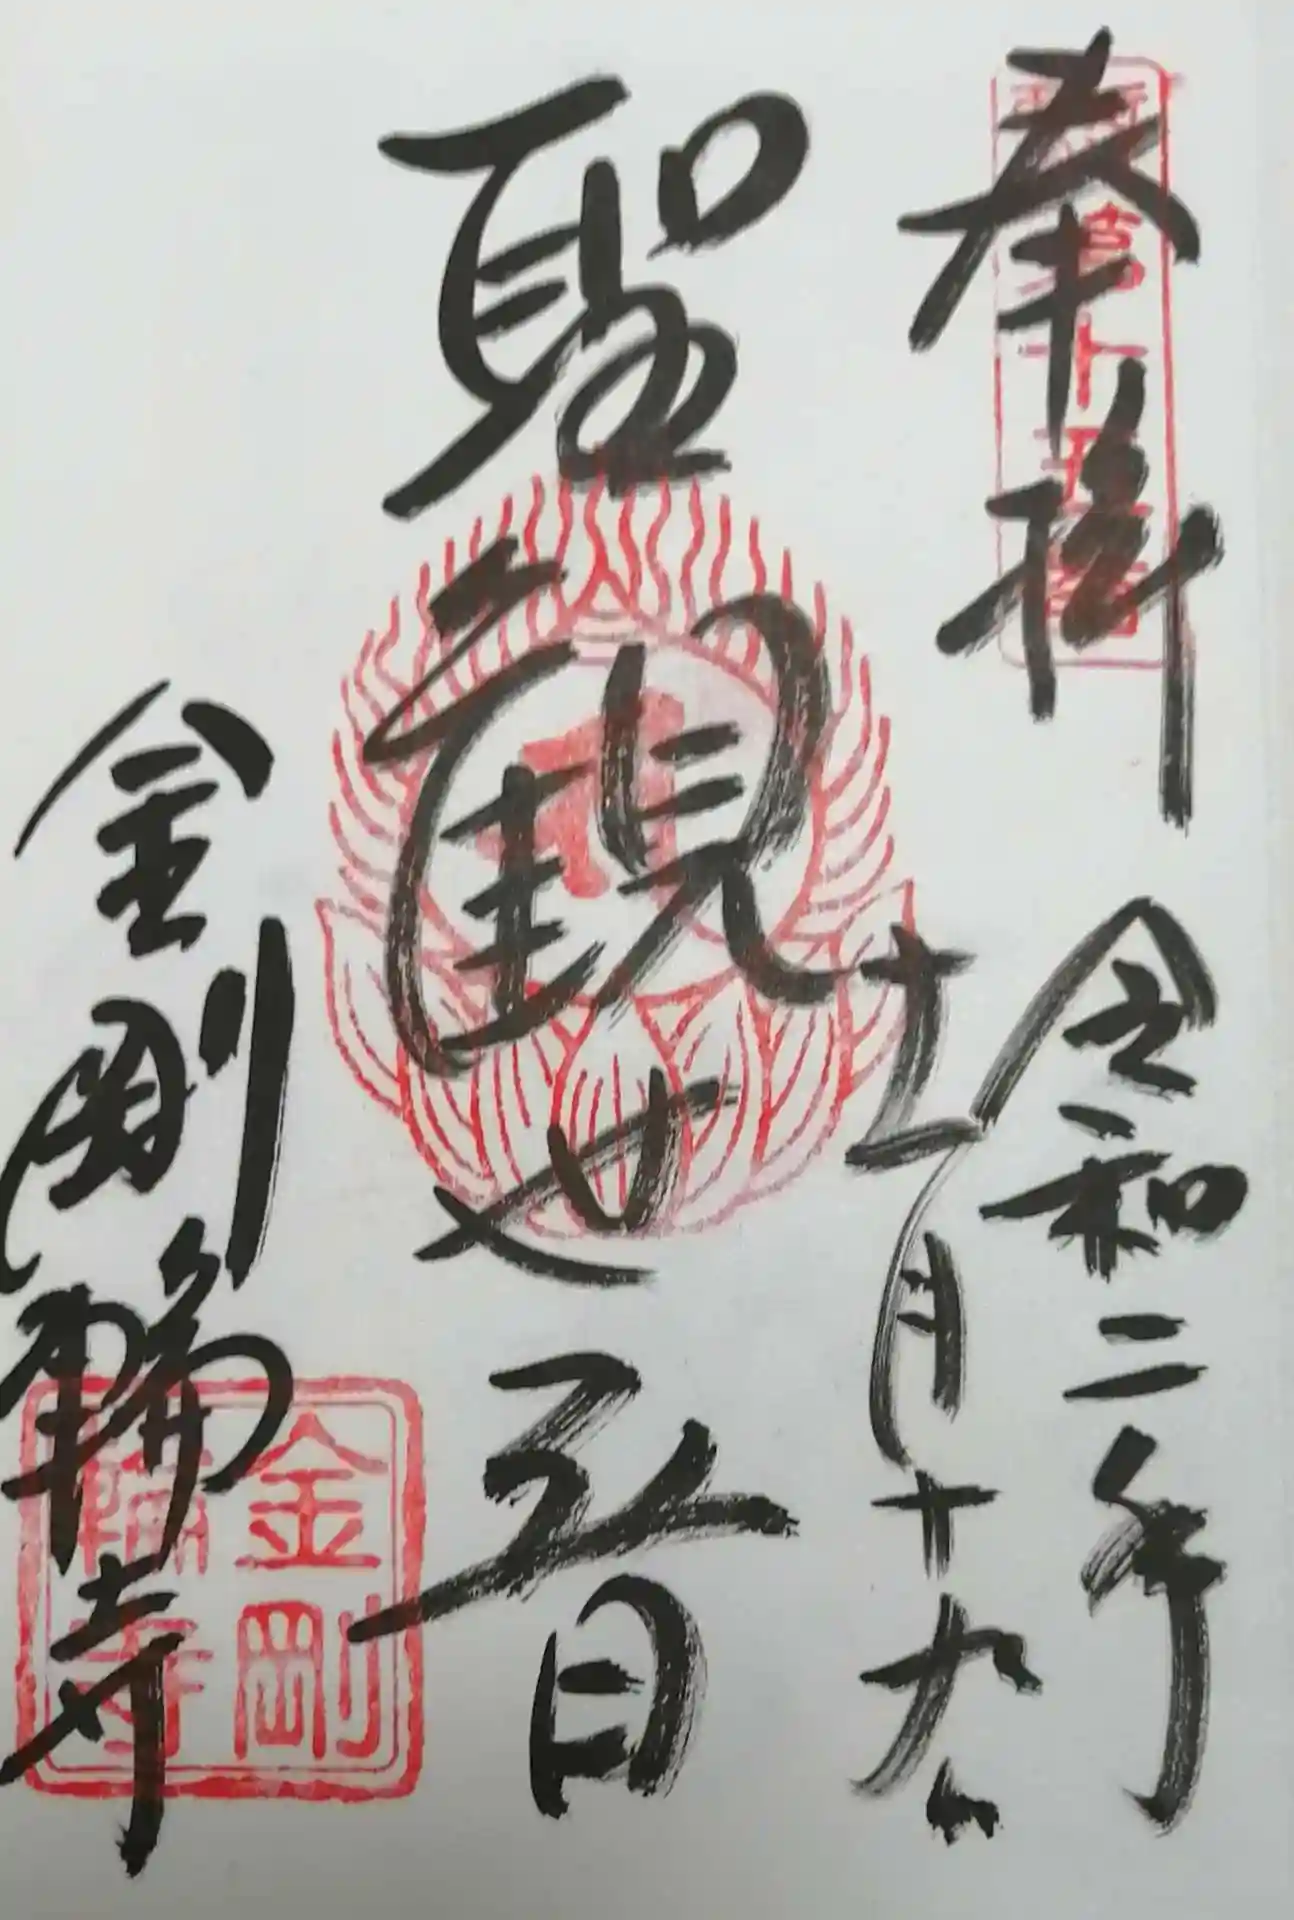 奉掛
令和二年
十一月十九日
聖観世音
金剛輪寺
金剛
輪寺